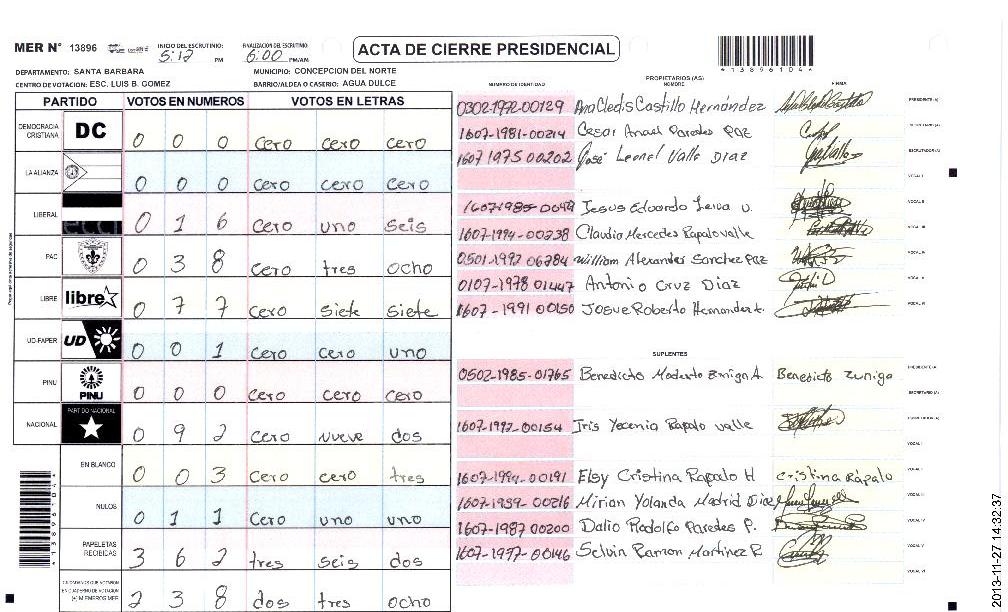 MER N° 13896 INICIO DEL ESCRUTINIO: 5:12 PM FINALIZACION DEL ESCRUTINIO: 6:00 PM/AM ACTA DE CIERRE PRESIDENCIAL
*13896104*
DEPARTAMENTO: SANTA BARBARA MUNICIPIO: CONCEPCION DEL NORTE
CENTRO DE VOTACION: ESC. LUIS B. GOMEZ BARRIO/ALDEA O CASERIO: AGUA DULCE
PARTIDO VOTOS EN NUMEROS VOTOS EN LETRAS
DEMOCRACIA CRISTIANA DC 0 0 0 cero cero cero
LA ALIANZA 0 0 0 cero cero cero
LIBERAL 0 1 6 cero uno seis
PAC 0 3 8 cero tres ocho
LIBRE libre 0 7 7 cero siete siete
UD-FAPER UD 0 0 1 cero cero uno
PINU PINU 0 0 0 cero cero cero
NACIONAL PARTIDO NACIONAL 0 9 2 cero nueve dos
EN BLANCO 0 0 3 cero cero tres
NULOS 0 1 1 cero uno uno
PAPELETAS RECIBIDAS 3 6 2 tres seis dos
CIUDADANOS QUE VOTARON EN CUADERNO DE VOTACION (+) MIEMBROS MER 2 3 8 dos tres ocho
PROPIETARIOS (AS)
NUMERO DE IDENTIDAD NOMBRE FIRMA
0302-1992-00129 Ana Cledis Castillo Hernández PRESIDENTE (A)
1607-1981-00214 Cesar Anael Paredes PAZ SECRETARIO (A)
1607 1975 00202 José Leonel Valle Diaz ESCRUTADOR (A)
VOCAL I
Jesus Eduardo Leiva U. VOCAL II
1607-1994-00238 Claudia Mercedes Rapalo valle VOCAL III
0501-1992 06784 William Alexander Sanchez PAZ VOCAL IV
0107-1978 01447 Antonio Cruz Diaz VOCAL V
1607-1991 00150 Josue Roberto Hernandez VOCAL VI
SUPLENTES
0502-1985-01765 Benedicto Modesto Zuniga A. Benedicto Zuniga PRESIDENTE (A)
SECRETARIO (A)
1607-1992-00154 Iris Yecenia Rapalo valle ESCRUTADOR (A)
VOCAL I
1607-1994-00191 Elsy Cristina Rapalo H cristina Rápalo VOCAL II
1607-1989-00216 Mirian Yolanda Madrid Diaz VOCAL III
1607-1987 00200 Dalio Rodolfo Paredes P. VOCAL IV
1607-1977-00146 Selvin Ramon Martinez R VOCAL V
VOCAL VI
*13896104*
2013-11-27 14:32:37